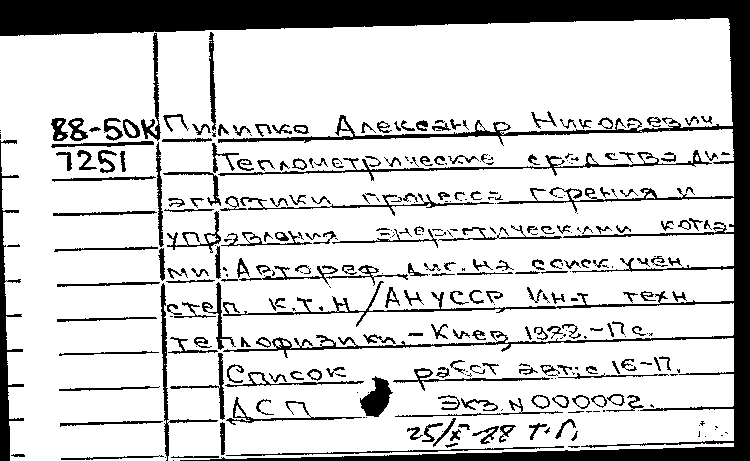 88-50К Пилипко, Александр Николаевич.
7251 Теплометрические средства ди-
агностики процесса горения и
управления энергетическими котла-
ми: Автореф. дис. на соиск. учен.
степ. к.т.н / АН УССР, Ин-т техн.
теплофизики. – Киев, 1988. – 17 с.
Список работ авт.: с 16-17.
ДСП Экз N 000002.
25/X-88 Т.П.